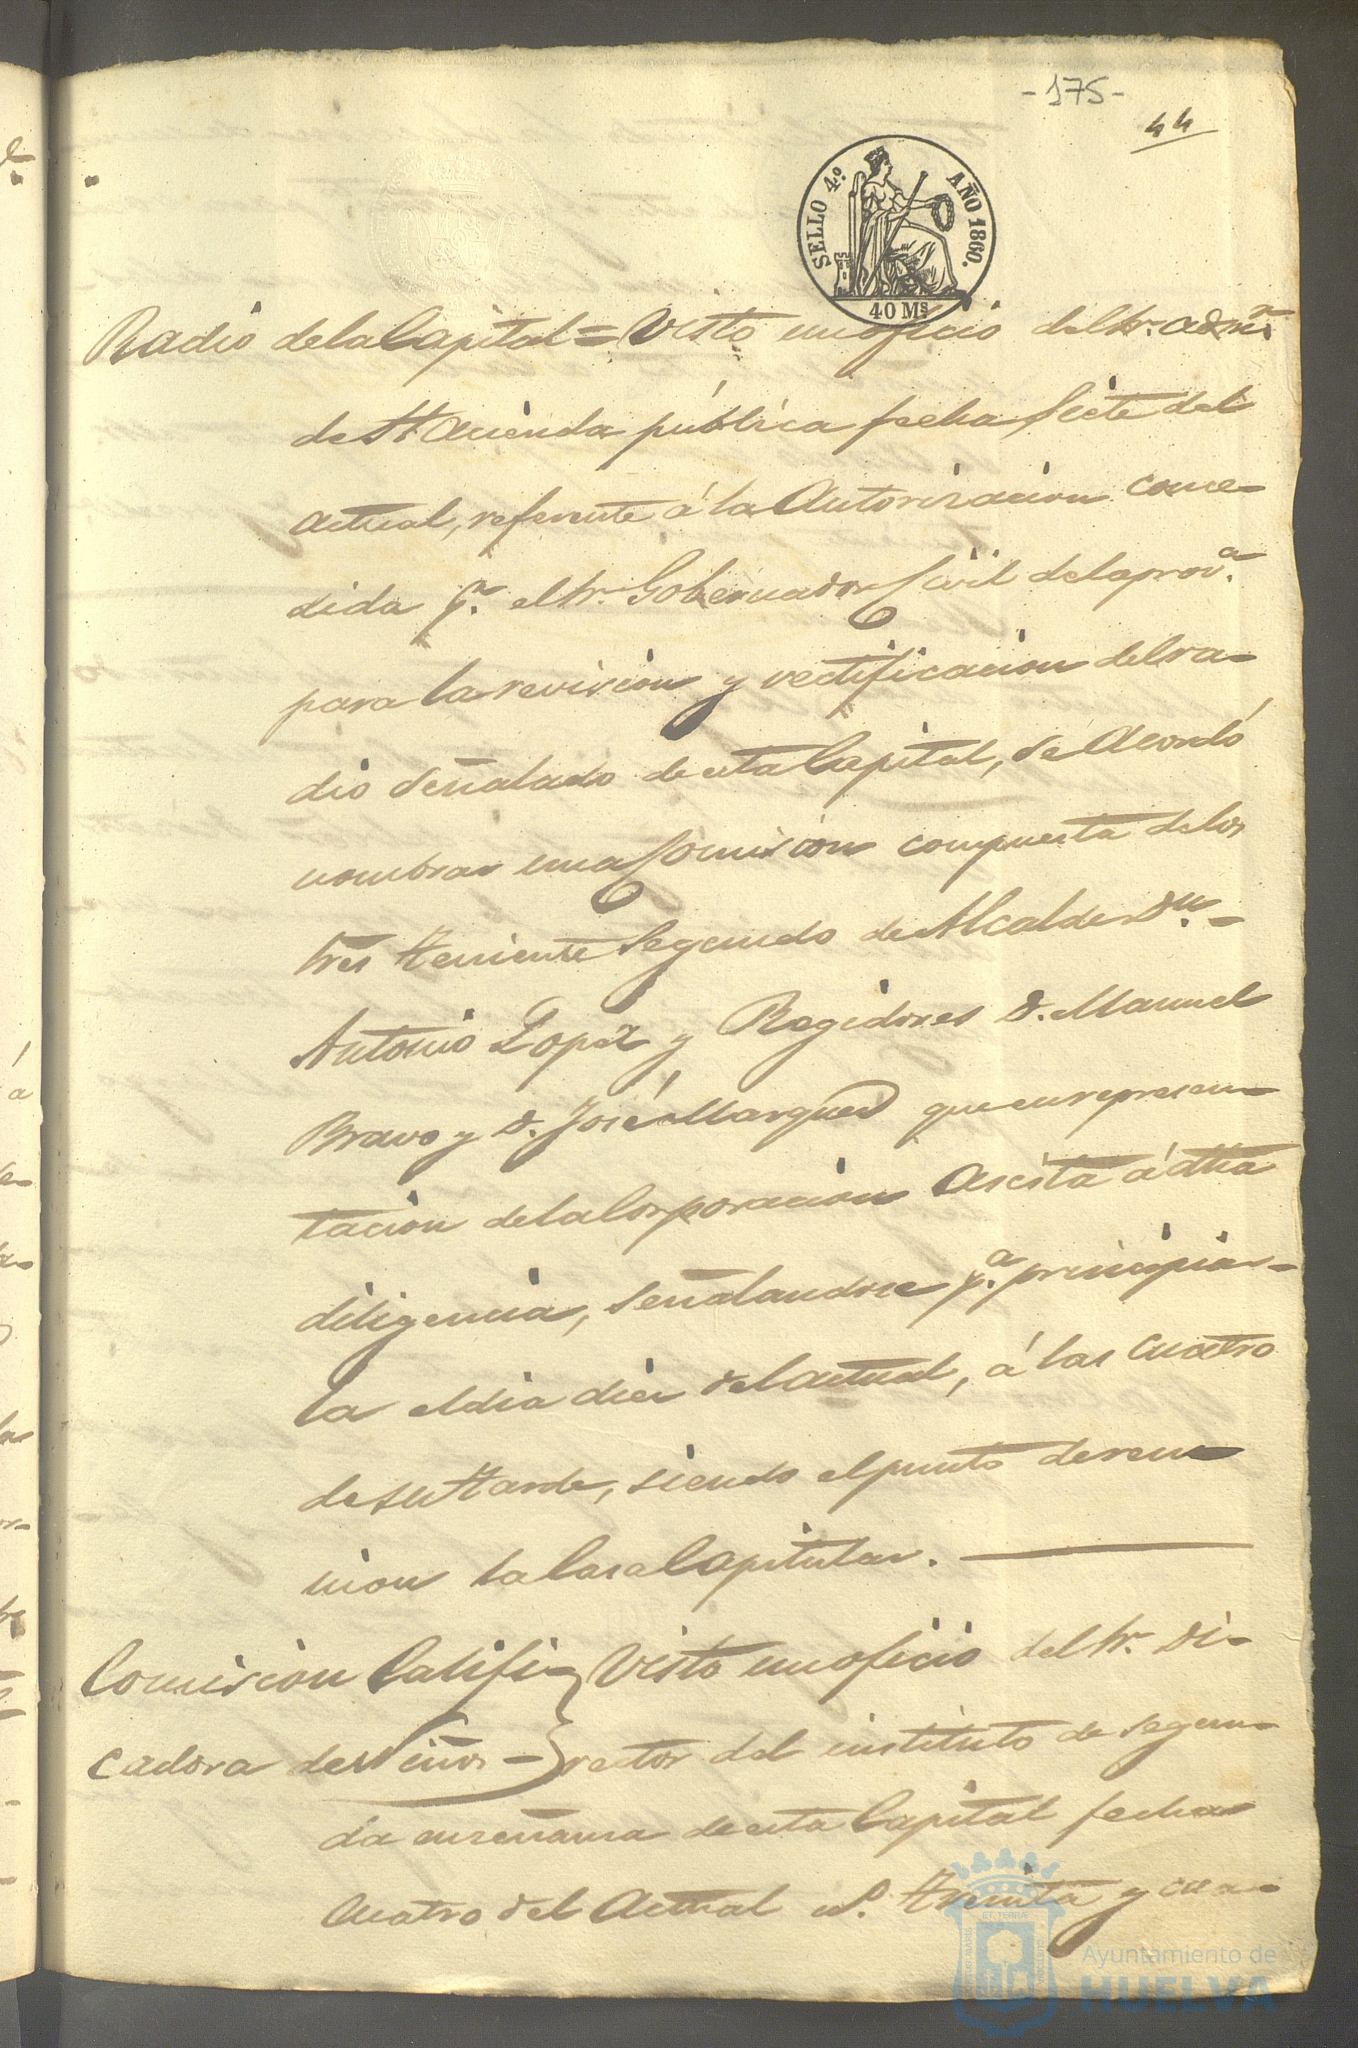 -175-
44
SELLO 4º AÑO 1860.
40 Ms
Radio de la Capital = Visto un oficio del Sr. admr.
de Hacienda pública fecha siete del
actual, referente á la Autorizacion conce-
dida pr. el Sr. Gobernador Civil de la prova.
para la revision y rectificacion del ra-
dio señalado de esta Capital, se Acordó
nombrar una Comision compuesta de los
Sres Teniente Segundo de Alcalde Dn.
Antonio Lopez y Regidores D. Manuel
Bravo y D. José Marques que en represen-
tacion de la Corporacion asista á dha
diligencia, señalandose pa. principiar-
la el dia diez del actual, á las cuatro
de su tarde, siendo el punto de reu-
nion la Casa Capitular.
Comision Califi- Visto un oficio del Sr. Di-
cadora de Niños - rector del instituto de segun-
da enseñanza de esta Capital fecha
cuatro del Actual nº. treinta y cua-
Ayuntamiento de
HUELVA